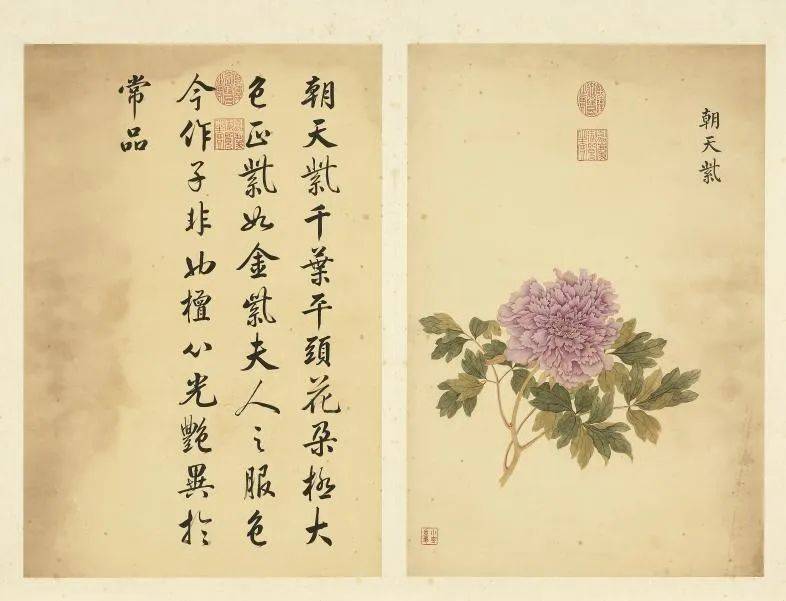 朝天紫
朝天紫千葉平頭花朵極大
色正紫如金紫夫人之服色
今作子非也檀心光艷異於
常品